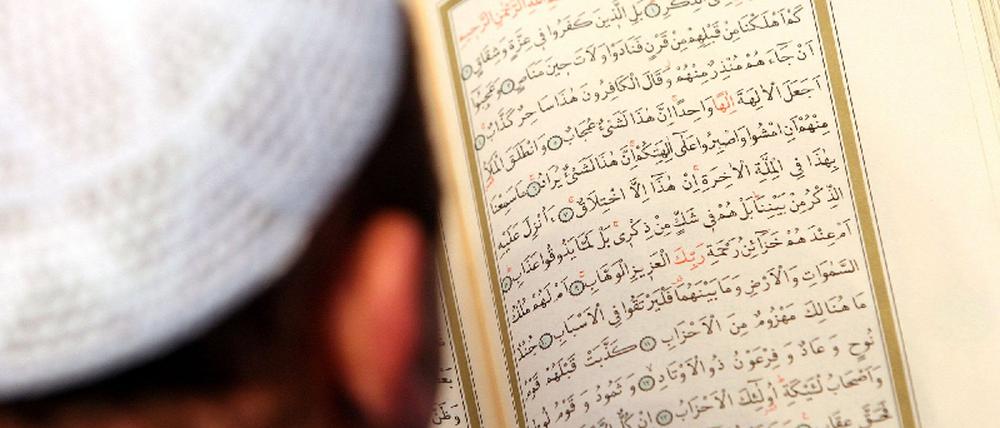 الرَّحْمٰنِ الرَّحِيمِ
الذِّكْرِ ۝ بَلِ الَّذِينَ كَفَرُوا فِي عِزَّةٍ وَشِقَاقٍ ۝
كَمْ اَهْلَكْنَا مِنْ قَبْلِهِمْ مِنْ قَرْنٍ فَنَادَوْا وَلَاتَ حِينَ مَنَاصٍ ۝ وَعَجِبُوا
اَنْ جَاءَهُمْ مُنْذِرٌ مِنْهُمْ وَقَالَ الْكَافِرُونَ هٰذَا سَاحِرٌ كَذَّابٌ ۝
اَجَعَلَ الْاٰلِهَةَ اِلٰهًا وَاحِدًا اِنَّ هٰذَا لَشَيْءٌ عُجَابٌ ۝ وَانْطَلَقَ الْمَلَاُ
مِنْهُمْ اَنِ امْشُوا وَاصْبِرُوا عَلٰى اٰلِهَتِكُمْ اِنَّ هٰذَا لَشَيْءٌ يُرَادُ ۝ مَا سَمِعْنَا
بِهٰذَا فِي الْمِلَّةِ الْاٰخِرَةِ اِنْ هٰذَا اِلَّا اخْتِلَاقٌ ۝ ءَاُنْزِلَ عَلَيْهِ
الذِّكْرُ مِنْ بَيْنِنَا بَلْ هُمْ فِي شَكٍّ مِنْ ذِكْرِي بَلْ لَمَّا يَذُوقُوا عَذَابِ ۝
اَمْ عِنْدَهُمْ خَزَائِنُ رَحْمَةِ رَبِّكَ الْعَزِيزِ الْوَهَّابِ ۝ اَمْ لَهُمْ مُلْكُ
السَّمٰوَاتِ وَالْاَرْضِ وَمَا بَيْنَهُمَا فَلْيَرْتَقُوا فِي الْاَسْبَابِ ۝ جُنْدٌ
مَا هُنَالِكَ مَهْزُومٌ مِنَ الْاَحْزَابِ ۝ كَذَّبَتْ قَبْلَهُمْ قَوْمُ
نُوحٍ وَعَادٌ وَفِرْعَوْنُ ذُو الْاَوْتَادِ ۝ وَثَمُودُ وَقَوْمُ لُوطٍ
وَاَصْحَابُ لْئَيْكَةِ اُولٰئِكَ الْاَحْزَابُ ۝ اِنْ كُلٌّ
فَحَقَّ عِقَابِ